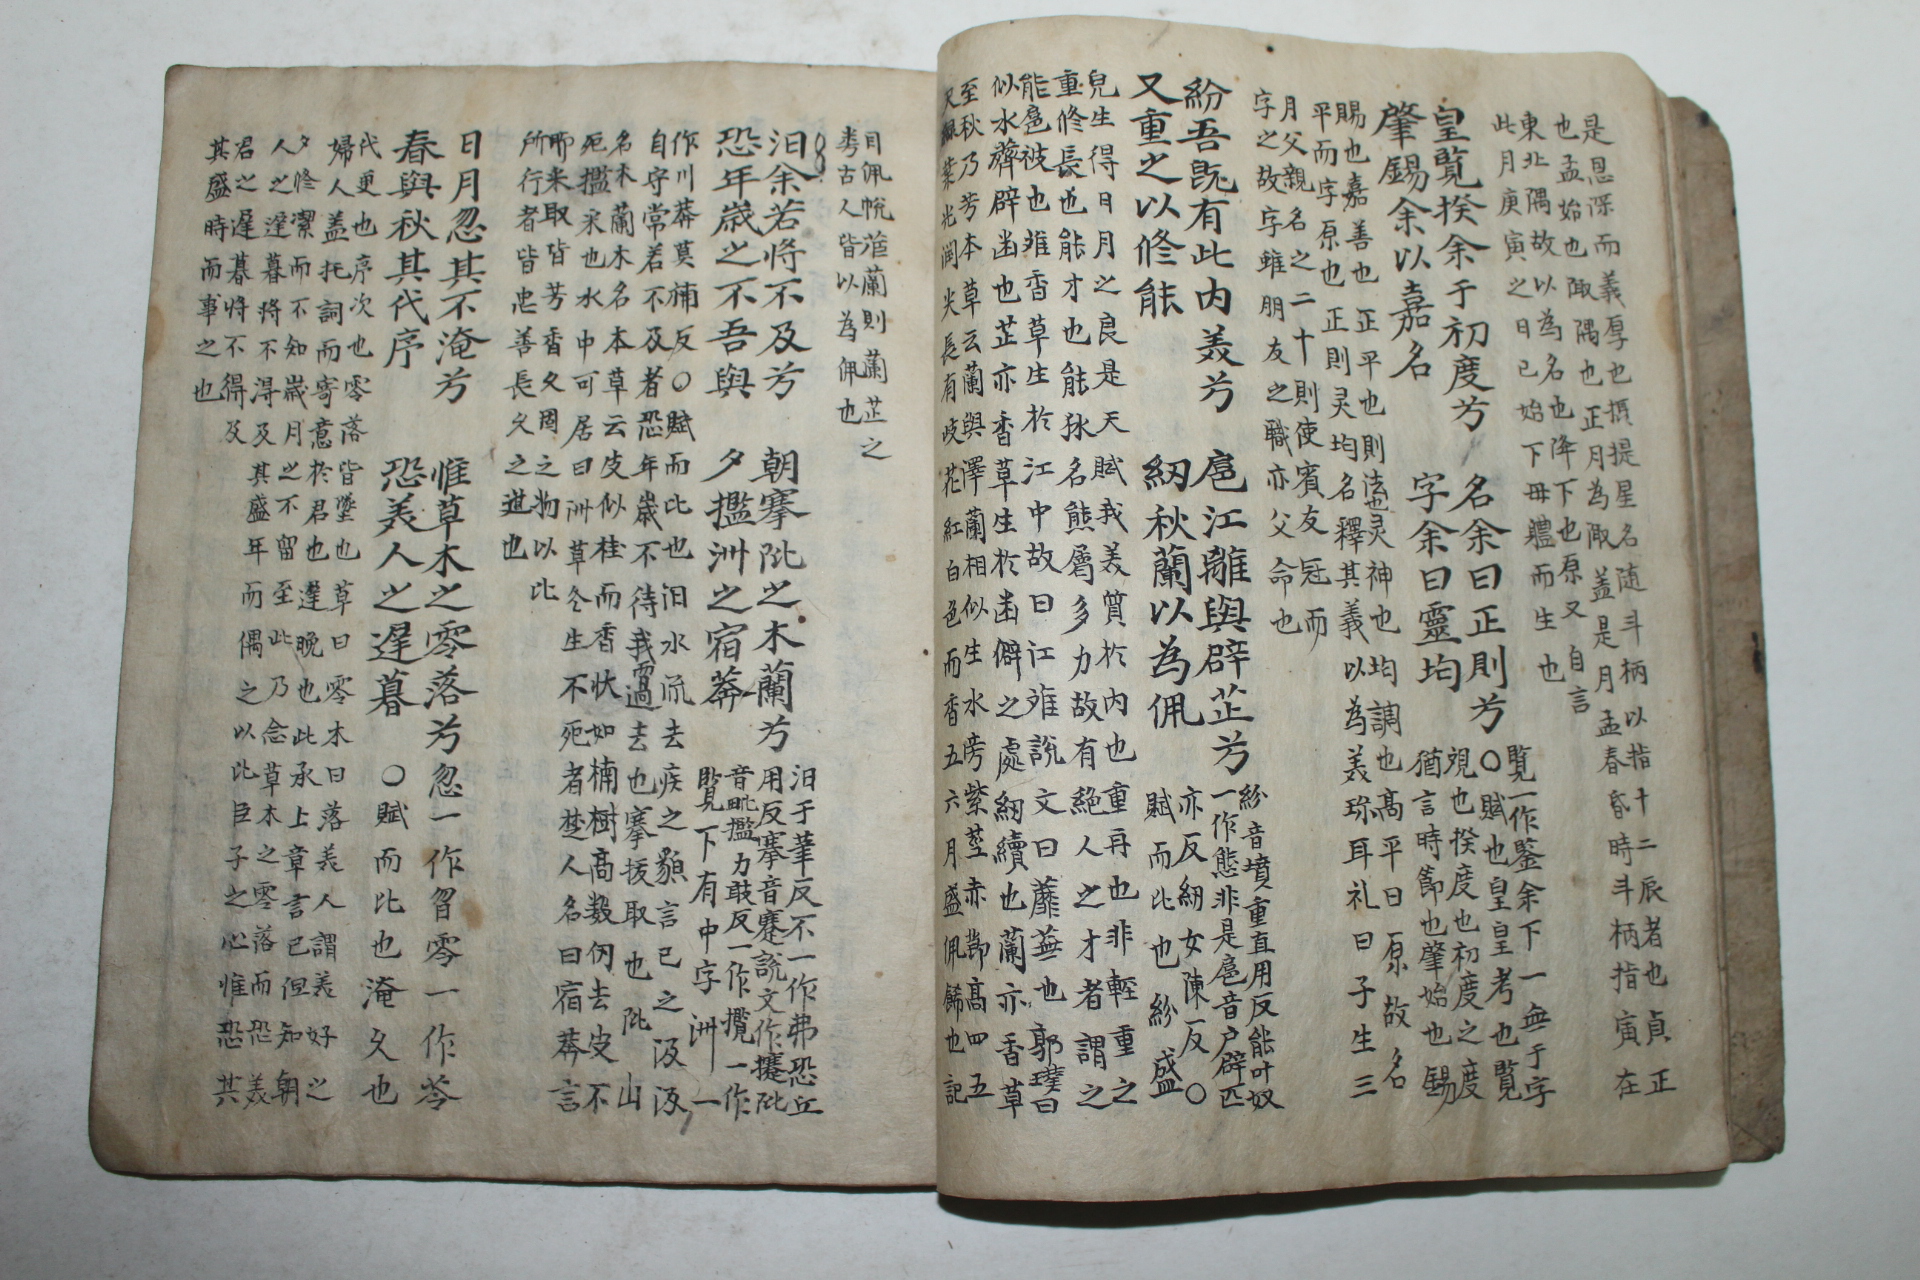 是恩深而義厚也摂提星名随斗柄以指十二辰者也貞正
也孟始也陬隅也正月為陬盖是月孟春昏時斗柄指寅在
東北隅故以為名也降下也原又自言
此月庚寅之日已始下母軆而生也
皇覧揆余于初度兮　名余曰正則兮
肇錫余以嘉名　字余曰靈均
覧一作鍳余下一無于字
○賦也皇皇考也覧
覌也揆度也初度之度
猶言時節也肇始也錫
賜也嘉善也正平也則法也灵神也均調也高平曰原故名
平而字原也正則灵均名釋其義以為美珎耳礼曰子生三
月父親名之二十則使賓友冠而
字之故字雖朋友之職亦父命也
紛吾既有此内美兮　扈江離與辟芷兮
又重之以修能　紉秋蘭以為佩
紛音墳重直用反能叶奴
一作態非是扈音户辟匹
亦反紉女陳一反○
賦而比也紛盛
皃生得日月之良是天賦我美質於内也重再也非輕重之
重修長也能才也能㹯名熊屬多力故有絶人之才者謂之
能扈被也雖香草生於江中故曰江雖說文曰蘼蕪也郭璞曰
似水薺辟凾也芷亦香草生於凾僻之處紉續也蘭亦香草
至秋乃芳本草云蘭與澤蘭相似生水旁紫茎赤節高四五
尺緑葉光澗尖長有歧花紅白色而香五六月盛佩餙也記
曰佩帨茝蘭則蘭芷之
類古人皆以為佩也
汩余若将不及兮　朝搴阰之木蘭兮
恐年歳之不吾與　夕擥洲之宿莽
汩于筆反不一作弗恐丘
用反搴音蹇說文作攓阰
音毗擥力敢反一作攬一作
覽下有中字洲一
作川莽莫補反○賦而比也汩水流去疾之皃言已之汲汲
自守常若不及者恐年歳不待我而過去也搴援取也阰山
名木蘭木名本草云皮似桂而香状如楠樹高数仞去皮不
死擥采也水中可居曰洲草冬生不死者楚人名曰宿莽言
所采取皆芳香久固之物以比
所行者皆忠善長久之道也
日月忽其不淹兮　惟草木之零落兮
春與秋其代序　恐美人之遅暮
忽一作曶零一作苓
○賦而比也淹久也
代更也序次也零落皆墜也草曰零木曰落美人謂美好之
婦人盖托詞而寄意於君也遅晩也此承上章言已但知朝
夕修潔而不知歳月之不留至此乃念草木之零落而恐美
人之遅暮将不得及其盛年而偶之以比臣子之心惟恐其
君之遅暮将不得及
其盛時而事之也